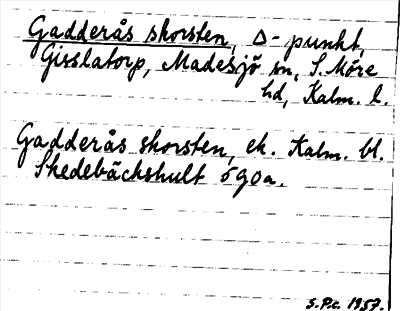 Gadderås skorsten, Δ-punkt,
Gisslatorp, Madesjö sn, S. Möre
hd, Kalm. l.
Gadderås skorsten, ek. Kalm. bl.
Skedebäckshult ägoa.
S.P.c. 1957.